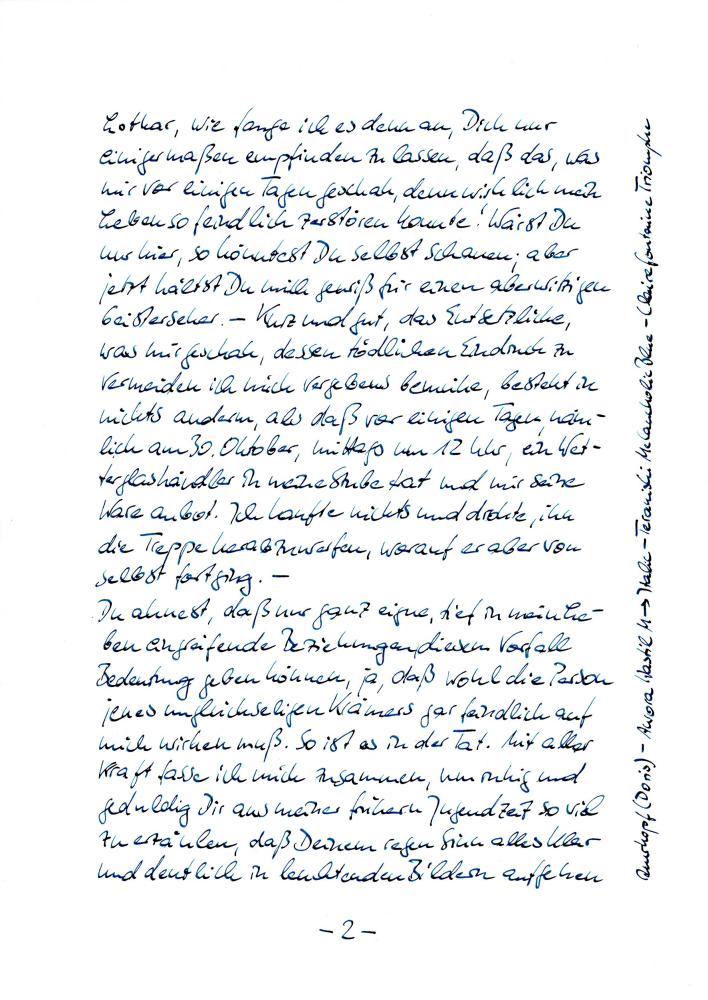 Lothar, wie fange ich es denn an, Dich nur
einigermaßen empfinden zu lassen, daß das, was
mir vor einigen Tagen geschah, denn wirklich mein
Leben so feindlich zerstören konnte! Wärst Du
nur hier, so könntest Du selbst schauen; aber
jetzt hältst Du mich gewiß für einen aberwitzigen
Geisterseher. – Kurz und gut, das Entsetzliche,
was mir geschah, dessen tödlichen Eindruck zu
vermeiden ich mich vergebens bemühe, besteht in
nichts anderm, als daß vor einigen Tagen, näm-
lich am 30. Oktober, mittags um 12 Uhr, ein Wet-
terglashändler in meine Stube trat und mir seine
Ware anbot. Ich kaufte nichts und drohte, ihn
die Treppe herabzuwerfen, worauf er aber von
selbst fortging. –
Du ahnest, daß nur ganz eigne, tief in mein Le-
ben eingreifende Beziehungen diesem Vorfall
Bedeutung geben können, ja, daß wohl die Person
jenes unglückseligen Krämers gar feindlich auf
mich wirken muß. So ist es in der Tat. Mit aller
Kraft fasse ich mich zusammen, um ruhig und
geduldig Dir aus meiner frühern Jugendzeit so viel
zu erzählen, daß Deinem regen Sinn alles klar
und deutlich in leuchtenden Bildern aufgehen
– 2 –
(Doris) – Aurora Hastil M → Italic – Teranishi Melancholic Blue – Clairefontaine Triomphe